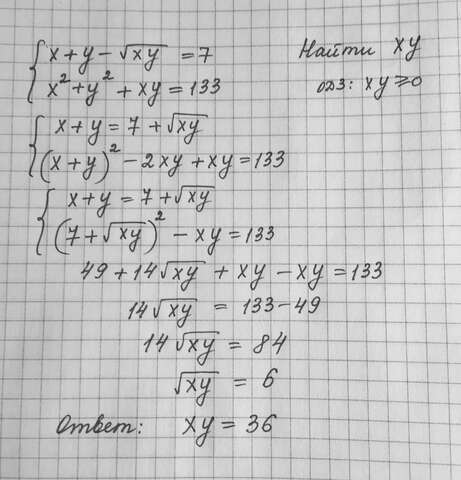 x + y − √xy = 7 Найти xy
x² + y² + xy = 133 ОДЗ: xy ⩾ 0
x + y = 7 + √xy
(x + y)² − 2xy + xy = 133
x + y = 7 + √xy
(7 + √xy)² − xy = 133
49 + 14√xy + xy − xy = 133
14√xy = 133 − 49
14√xy = 84
√xy = 6
Ответ: xy = 36